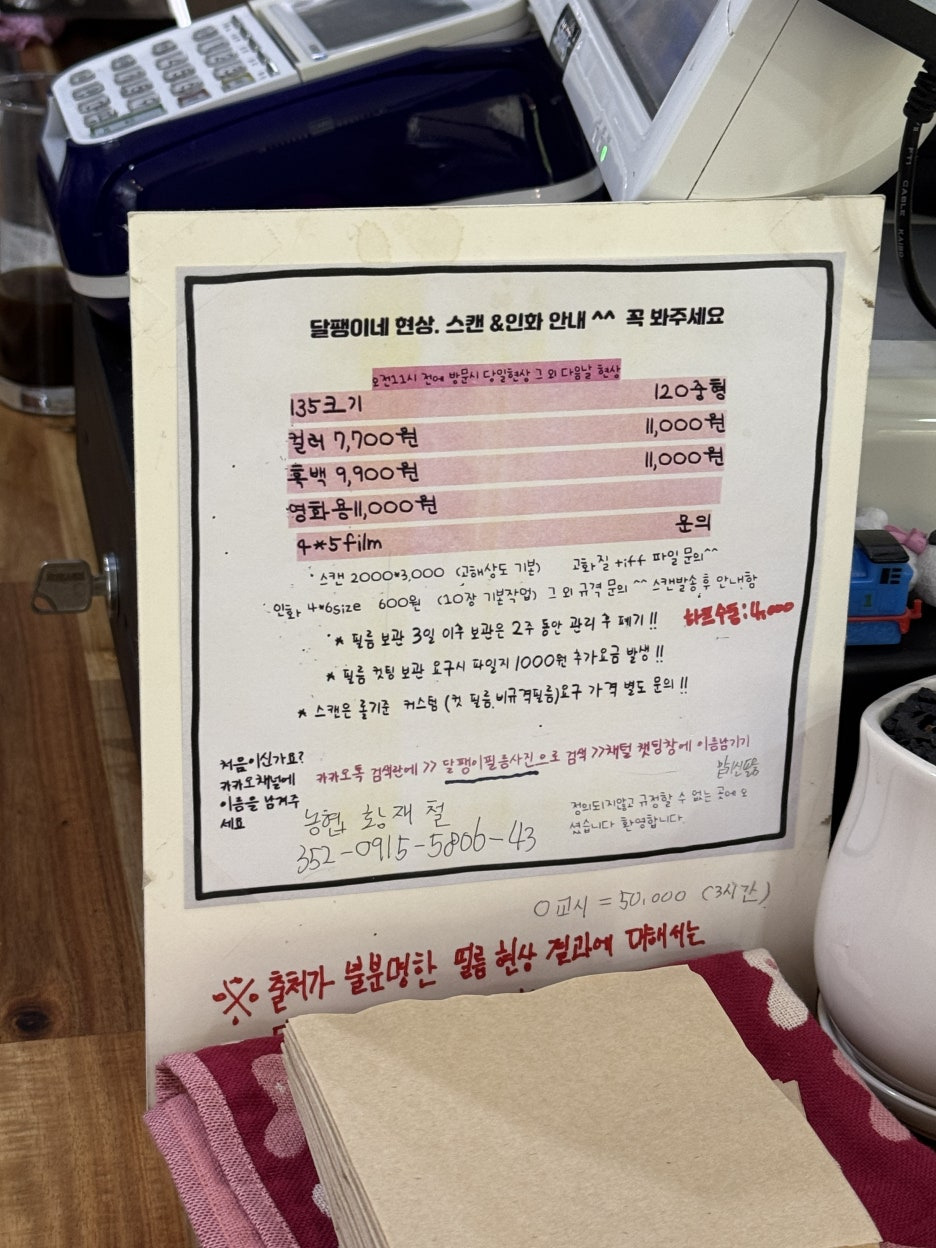 달팽이네 현상. 스캔 &인화 안내 ^^ 꼭 봐주세요
오전11시 전에 방문시 당일현상 그 외 다음날 현상
135크기 120중형
컬러 7,700원 11,000원
흑백 9,900원 11,000원
영화용11,000원
4*5film 문의
· 스캔 2000*3,000 (고해상도 기본) 고화질 tiff 파일 문의^^
· 인화 4*6size 600원 (10장 기본작업) 그 외 규격 문의 ^^ 스캔발송 후 안내함
* 필름 보관 3일 이후 보관은 2주 동안 관리 후 폐기 !! 하프수동:4,000
* 필름 컷팅 보관 요구시 파일지 1000원 추가요금 발생 !!
* 스캔은 롤기준 커스텀 (컷 필름,비규격필름)요구 가격 별도 문의 !!
처음이신가요?
카카오채널에
이름을 남겨주
세요
카카오톡 검색란에 >> 달팽이필름사진으로 검색 >>채널 챗팅창에 이름남기기
농협 황재철
352-0915-5806-43
정의되지않고 규정할 수 없는 곳에 오
셨습니다 환영합니다.
0교시 = 50,000 (3시간)
※ 출처가 불분명한 필름 현상 결과에 대해서는
CABLE KAIRO